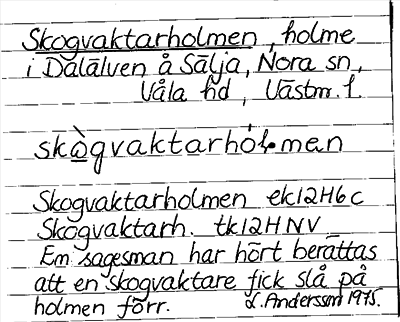 Skogvaktarholmen, holme
i Dalälven å Sälja, Nora sn,
Våla hd, Västm. l.
skògvaktarhól.men
Skogvaktarholmen ek12H6c
Skogvaktarh. tk12HNV
En sagesman har hört berättas
att en skogvaktare fick slå på
holmen förr. L. Andersson 1975.